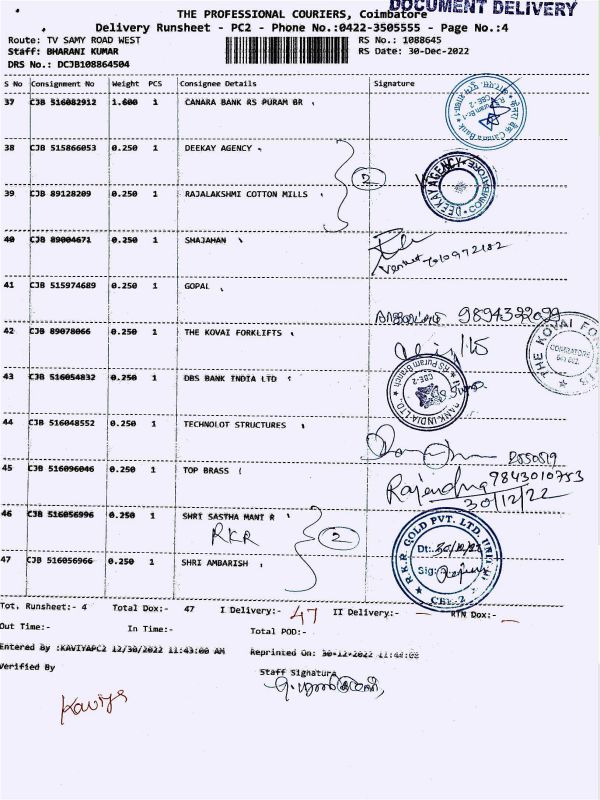 DOCUMENT DELIVERY
THE PROFESSIONAL COURIERS, Coimbatore
Delivery Runsheet - PC2 - Phone No.:0422-3505555 - Page No.:4
Route: TV SAMY ROAD WEST
RS No.: 1088645
Staff: BHARANI KUMAR
RS Date: 30-Dec-2022
DRS No.: DCJB108864504
S No Consignment No Weight PCS Consignee Details Signature
37 CJB 516082912 1.600 1 CANARA BANK RS PURAM BR
38 CJB 515866053 0.250 1 DEEKAY AGENCY
2
DEEKAY AGENCY
COIMBATORE
39 CJB 89128209 0.250 1 RAJALAKSHMI COTTON MILLS
40 CJB 89004671 0.250 1 SHAJAHAN
Venkat 7010972182
41 CJB 515974689 0.250 1 GOPAL
9894322029
42 CJB 89078066 0.250 1 THE KOVAI FORKLIFTS
THE KOVAI
COIMBATORE
43 CJB 516054832 0.250 1 DBS BANK INDIA LTD
BANK INDIA LTD.
RS Puram Branch
CBE-2
44 CJB 516048552 0.250 1 TECHNOLOT STRUCTURES
45 CJB 516096046 0.250 1 TOP BRASS
9843010753
Rajendra
30/12/22
46 CJB 516056996 0.250 1 SHRI SASTHA MANI R
RKR
2
R.K.R. GOLD PVT. LTD.
Dt:. 30/12/22
Sig:
CBE-2
47 CJB 516056966 0.250 1 SHRI AMBARISH
Tot. Runsheet:- 4 Total Dox:- 47 I Delivery:- 47 II Delivery:- - RTN Dox:- -
Out Time:- In Time:- Total POD:-
Entered By :KAVIYAPC2 12/30/2022 11:43:00 AM Reprinted On: 30-12-2022
Verified By
Staff Signature
Kaviya